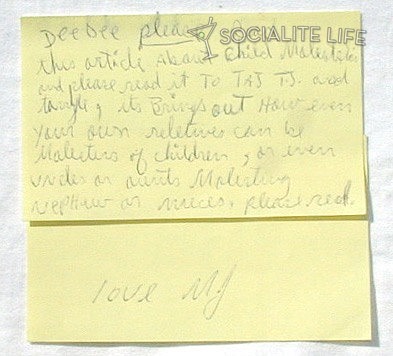 SOCIALITE LIFE
DeeDee please
this article About Child Molestation
and please read it TO TAJ TJ. and
taryll, its Brings out How even
your own reletives can be
Molesters of children, or even
uncles or aunts Molesting
nephew or nieces. please read.
love MJ